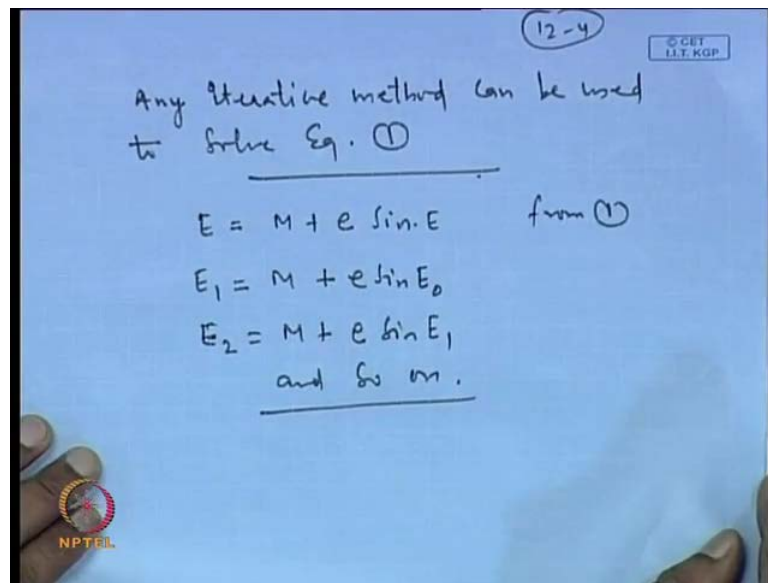 12-4
© CET
I.I.T. KGP
Any iterative method can be used
to solve Eq. ①
E = M + e sin.E from ①
E₁ = M + e sin E₀
E₂ = M + e sin E₁
and so on.
NPTEL